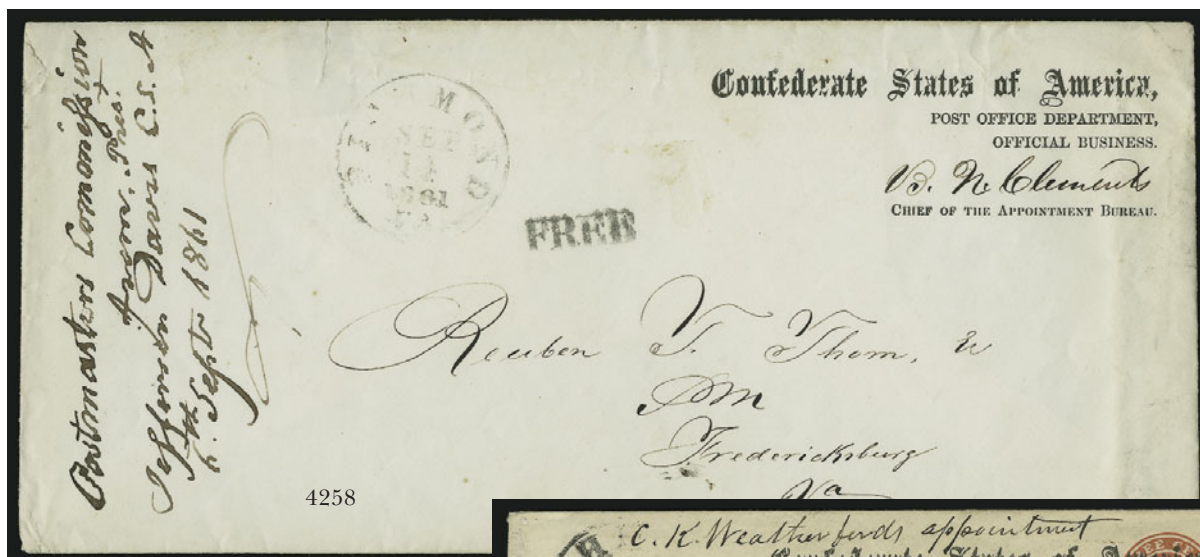 Postmasters Commission
from Pres.t
Jefferson Davis C.S.A
6th Sept. 1861
RICHMOND
SEP
14
1861
VA
FREE
Confederate States of America,
POST OFFICE DEPARTMENT,
OFFICIAL BUSINESS.
B. N. Clements
CHIEF OF THE APPOINTMENT BUREAU.
Reuben T. Thom,
PM
Fredericksburg
Va
4258
C. K. Weatherfords appointment
Confederate States of